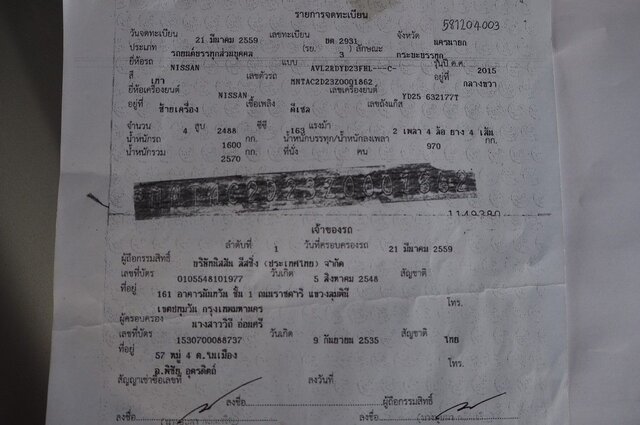 รายการจดทะเบียน
581204003
วันจดทะเบียน 21 มีนาคม 2559 เลขทะเบียน 2931 จังหวัด
ประเภท รถยนต์บรรทุกส่วนบุคคล (รย. 3) ลักษณะ กระบะบรรทุก
ยี่ห้อรถ NISSAN แบบ รุ่นปี ค.ศ. 2015
สี เทา เลขตัวรถ MNTAC2D23Z0001862 อยู่ที่ กลางขวา
ยี่ห้อเครื่องยนต์ NISSAN เลขเครื่องยนต์ YD25 632177T
อยู่ที่ ซ้ายเครื่อง เชื้อเพลิง ดีเซล เลขถังแก๊ส
จำนวน 4 สูบ 2488 ซีซี 163 แรงม้า 2 เพลา 4 ล้อ ยาง 4 เส้น
น้ำหนักรถ 1600 กก. น้ำหนักบรรทุก/น้ำหนักลงเพลา 970 กก.
น้ำหนักรวม 2570 กก. ที่นั่ง คน
1149380
เจ้าของรถ
ลำดับที่ 1 วันที่ครอบครองรถ 21 มีนาคม 2559
ผู้ถือกรรมสิทธิ์ บริษัทนิสสัน ลีสซิ่ง (ประเทศไทย) จำกัด
เลขที่บัตร 0105548101977 วันเกิด 5 สิงหาคม 2548 สัญชาติ
ที่อยู่ 161 อาคารนันทวัน ชั้น 1 ถนนราชดำริ แขวงลุมพินี โทร.
เขตปทุมวัน กรุงเทพมหานคร
ผู้ครอบครอง นางสาววิถี อ่อมศรี
เลขที่บัตร 1530700088737 วันเกิด 9 กันยายน 2535 สัญชาติ ไทย
ที่อยู่ 57 หมู่ 4 ต.ในเมือง โทร.
อ.พิชัย, อุตรดิตถ์
สัญญาเช่าซื้อเลขที่ ลงวันที่
ลงชื่อ ผู้ถือกรรมสิทธิ์
ลงชื่อ ลงชื่อ